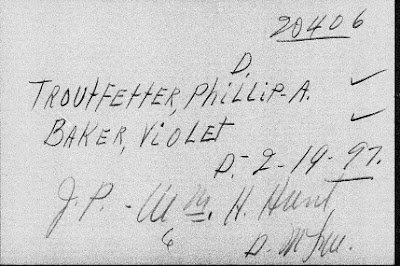 20406
D.
TROUTFETTER, PHILLIP-A. ✓
BAKER, VIOLET ✓
D.- 2-19-97.
J.P. - Wm. H. Hunt
6
D.